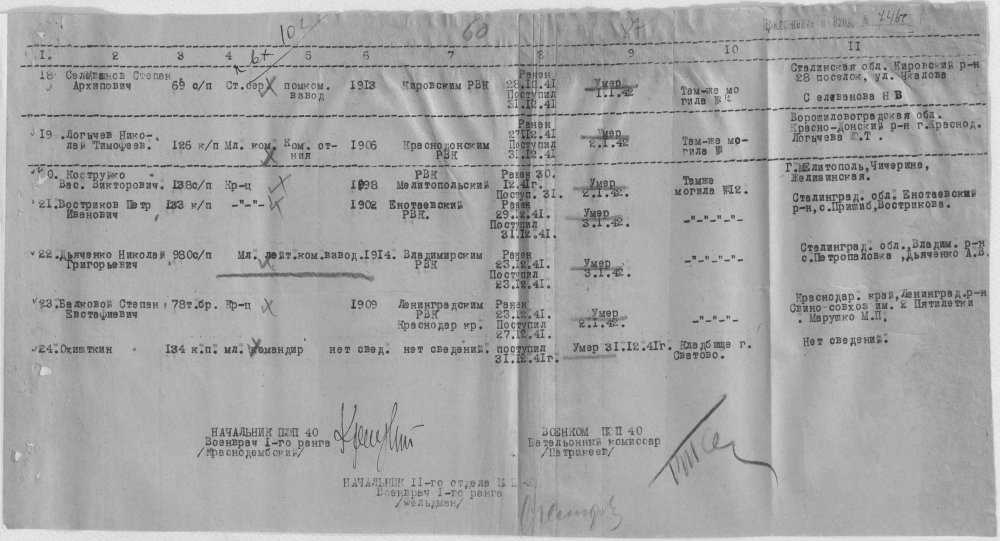 10г 60 87 Приложение к вход. № 746с
1. 2 3 4 5 6 7 8 9 10 11
18 Селеванов Степан Архипович 69 с/п Ст.сер. помком. взвод 1913 Кировским РВК Ранен 28.12.41 Поступил 31.12.41 Умер 1.1.42 Там-же могила №12 Сталинская обл. Кировский р-н 28 поселок, ул. Чкалова Селеванова Н В
19 .Логычев Нико- лай Тимофеев. 126 к/п Мл. ком. Ком. от- ния 1906 Краснодонским РВК Ранен 27.12.41 Поступил 31.12.41 Умер 2.1.42 Там-же мо- гила № Ворошиловоградская обл. Красно-донский р-н г.Краснод. Логычева Т
0. Кострубко Вас. Викторович. 138с/п Кр-ц 1898 РВК Мелитопольский Ранен 30. 12.41г. Поступ. 31. Умер 2.1.42 Тамже могила №12. Г.Мелитополь,Чичерина, Желизинская.
21.Востриков Петр Иванович 133 к/п -"-"- 1902 Енотаевский РВК. Ранен 29.12.41. Поступил 31.12.41. Умер 3.1.42. -"-"-"-"- Сталинград. обл. Енотаевский р-н,с.Пришиб,Вострикова.
22.Дьяченко Николай Григорьевич 980с/п Мл. лейт.ком.взвод. 1914. Владимирским РВК Ранен 23.12.41. Поступил 23.12.41. Умер 3.1.42. -"-"-"-"- Сталинград. обл.,Владим. р-н с.Петропаловка ,Дьяченко А.В.
23.Балковой Степан Евстафиевич 78т.бр. Кр-ц 1909 Ленинградским РВК Краснодар кр. Ранен 23.12.41. Поступил 27.12.41. Умер 2.1.42. -"-"-"-"- Краснодар. край,Ленинград.р-н Свино-совхоз им. 2 Пятилетки . Марушко М.П.
24.Охишткин 134 к.п. мл. командир нет свед. нет сведений. поступил 31.12.41г. Умер 31.12.41г. Кладбище г. Сватово. Нет сведений.
НАЧАЛЬНИК ПЭП 40
Военврач I-го ранга
/Краснодембский/
ВОЕНКОМ ПЭП 40
Батальонный комиссар
/Патрикеев/
НАЧАЛЬНИК II-го отдела
Военврач I-го ранга
/Фельдман/